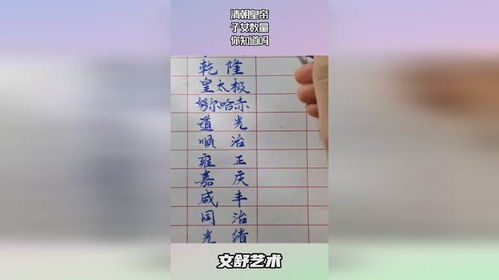 清朝皇帝
子女数量
你知道吗
乾隆
皇太极
努尔哈赤
道光
顺治
雍正
嘉庆
咸丰
同治
光绪
文舒艺术